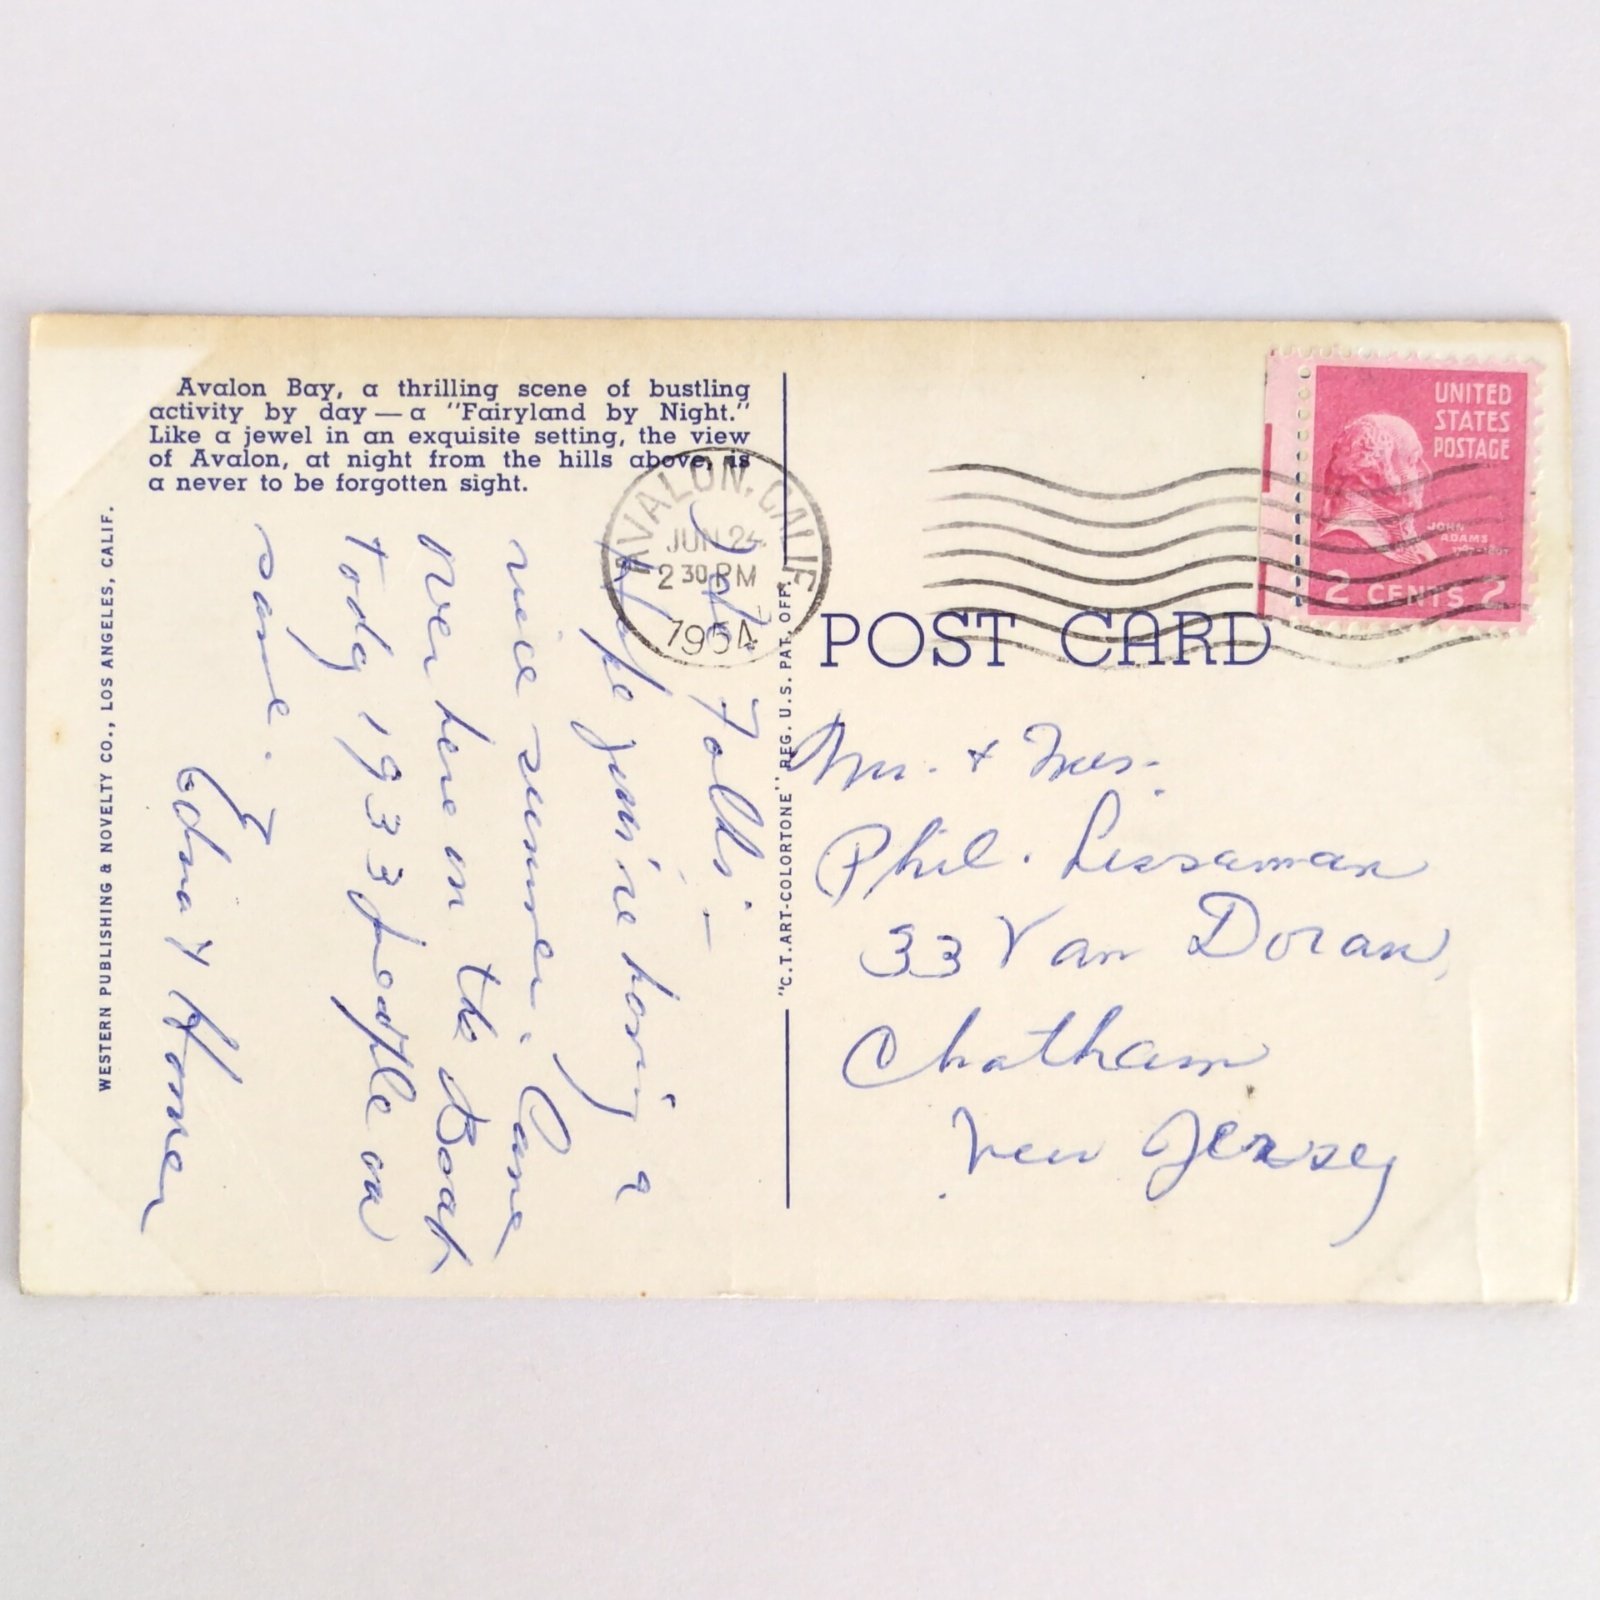 Avalon Bay, a thrilling scene of bustling
activity by day — a "Fairyland by Night."
Like a jewel in an exquisite setting, the view
of Avalon, at night from the hills above, is
a never to be forgotten sight.
WESTERN PUBLISHING & NOVELTY CO., LOS ANGELES, CALIF.
"C.T. ART-COLORTONE" REG. U.S. PAT. OFF.
AVALON, CALIF.
JUN 24
2 30 PM
1954
UNITED
STATES
POSTAGE
JOHN
ADAMS
1797-1801
2 CENTS 2
POST CARD
Folks -
Hope you're having a
nice summer. Came
over here on the Boat
today 1933 people on
same.
Edna & Homer
Mr. & Mrs.
Phil. Lissaman
33 Van Doran
Chatham
New Jersey